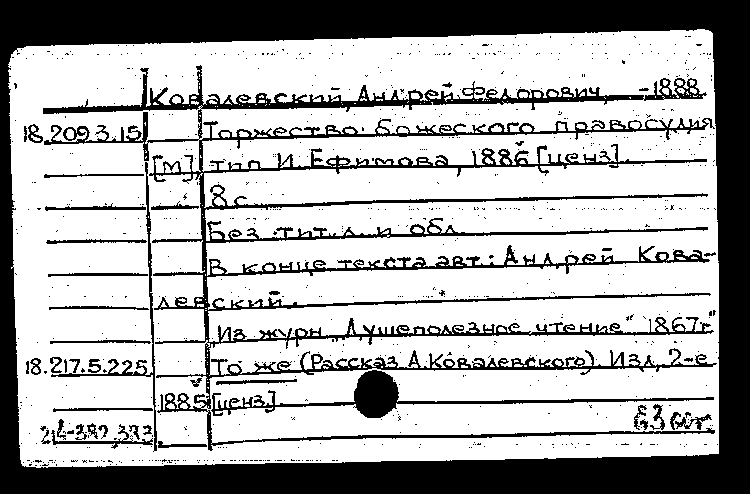 Ковалевский, Андрей Федорович, -1888.
18.209.3.15 Торжество божеского правосудия
[М], тип И. Ефимова, 1886 [ценз].
8 с.
Без тит. л. и обл.
В конце текста авт.: Андрей Кова-
левский.
"Из журн „Душеполезное чтение" 1867г"
18.217.5.225 То же (Рассказ А. Ковалевского). Изд, 2-е
1885 [ценз].